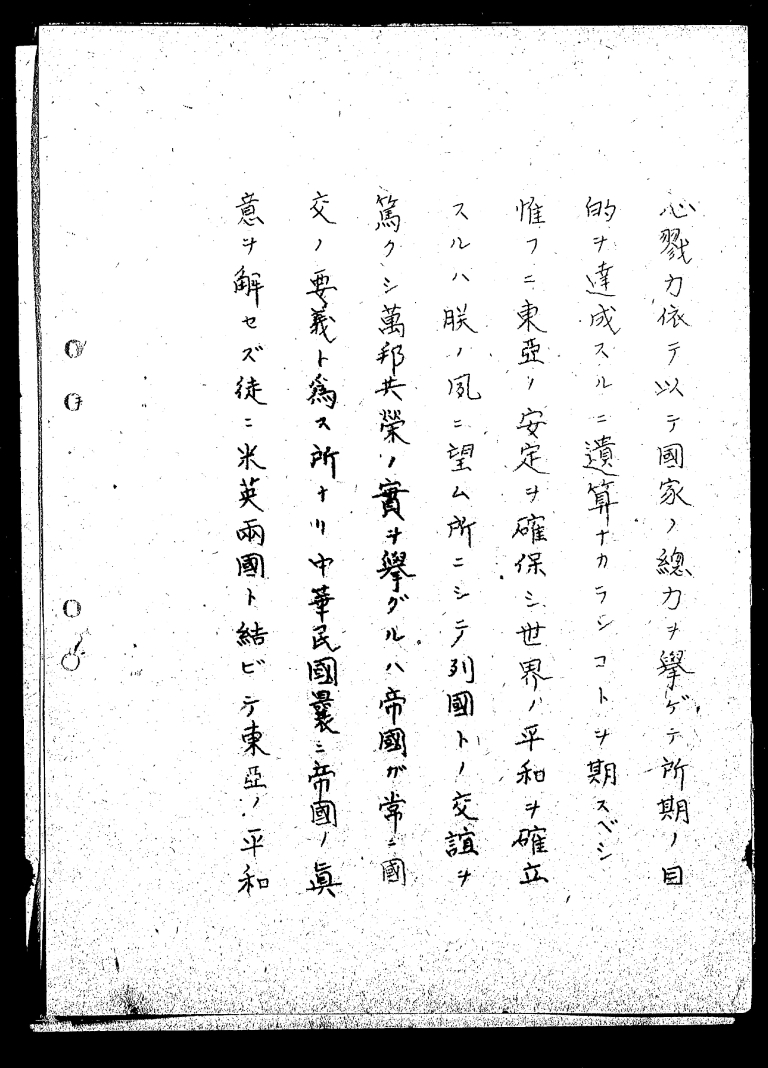 心戮力依テ以テ國家ノ總力ヲ擧ゲテ所期ノ目
的ヲ達成スルニ遺算ナカランコトヲ期スベシ
惟フニ東亞ノ安定ヲ確保シ世界ノ平和ヲ確立
スルハ朕ノ夙ニ望ム所ニシテ列國トノ交誼ヲ
篤クシ萬邦共榮ノ實ヲ擧グルハ帝國ガ常ニ國
交ノ要義ト爲ス所ナリ中華民國曩ニ帝國ノ眞
意ヲ解セズ徒ニ米英兩國ト結ビテ東亞ノ平和